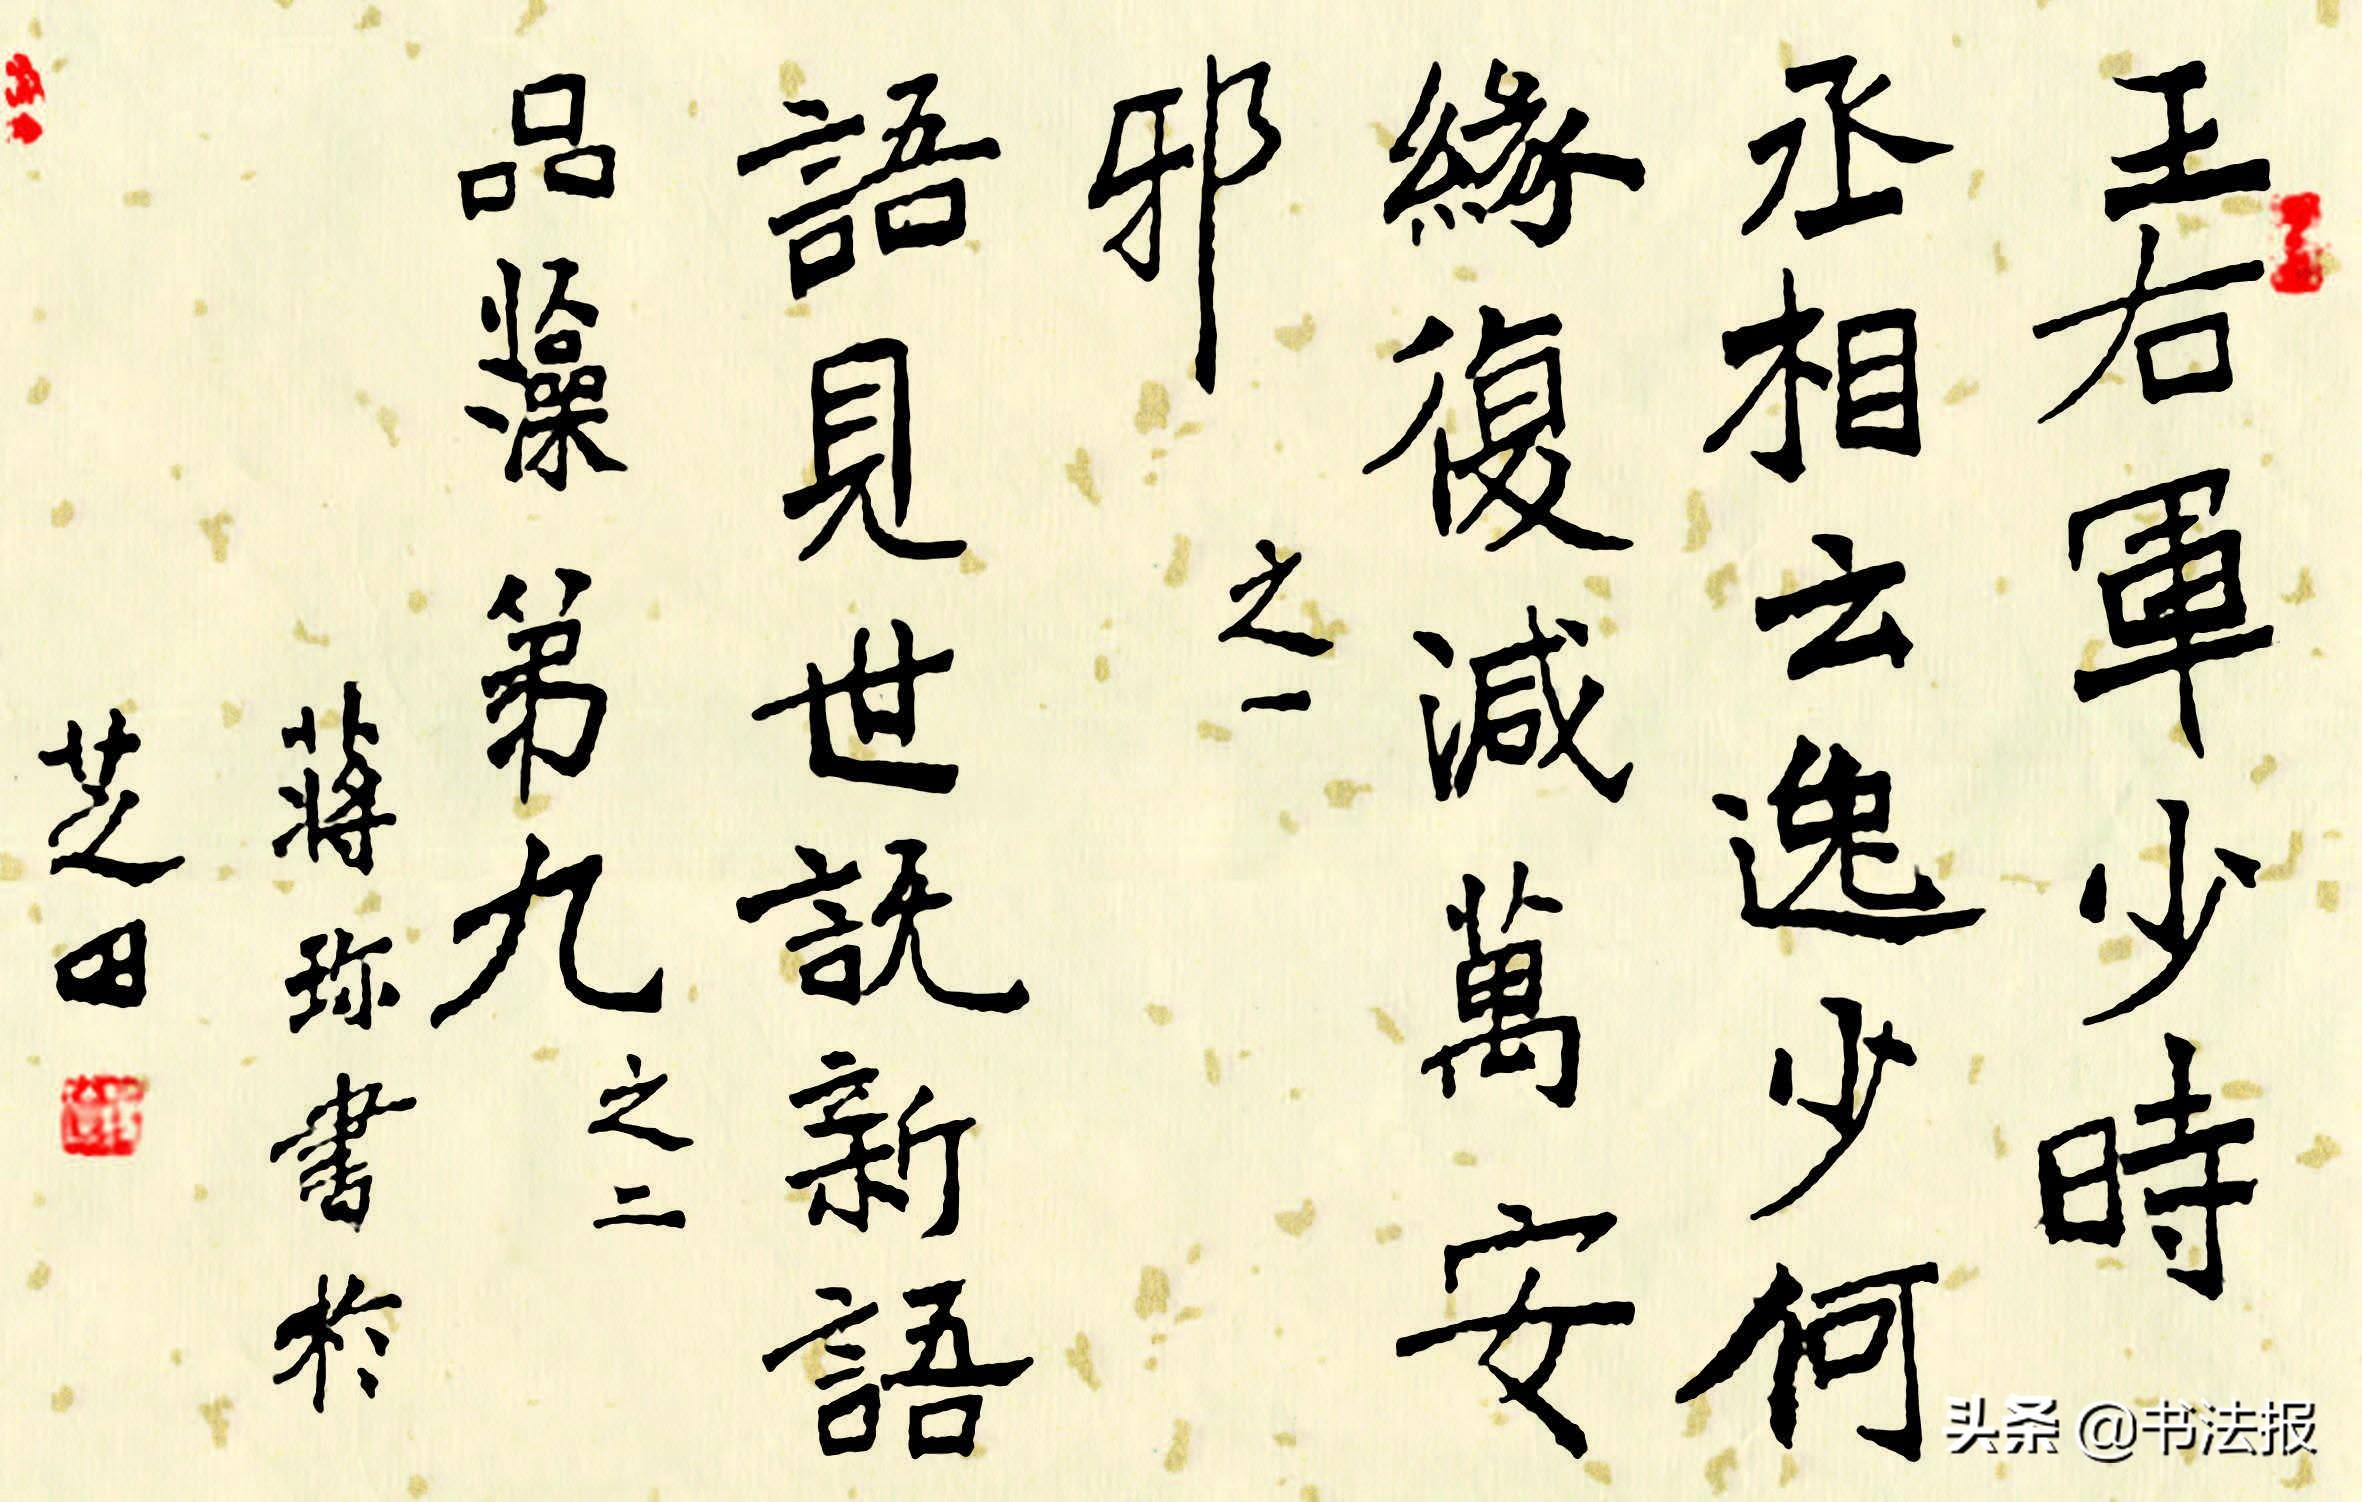 王右軍少時
丞相云逸少何
緣復減萬安
邪
之一
語見世說新語
品藻第九
之二
蔣珎書於
芝田
头条 @书法报